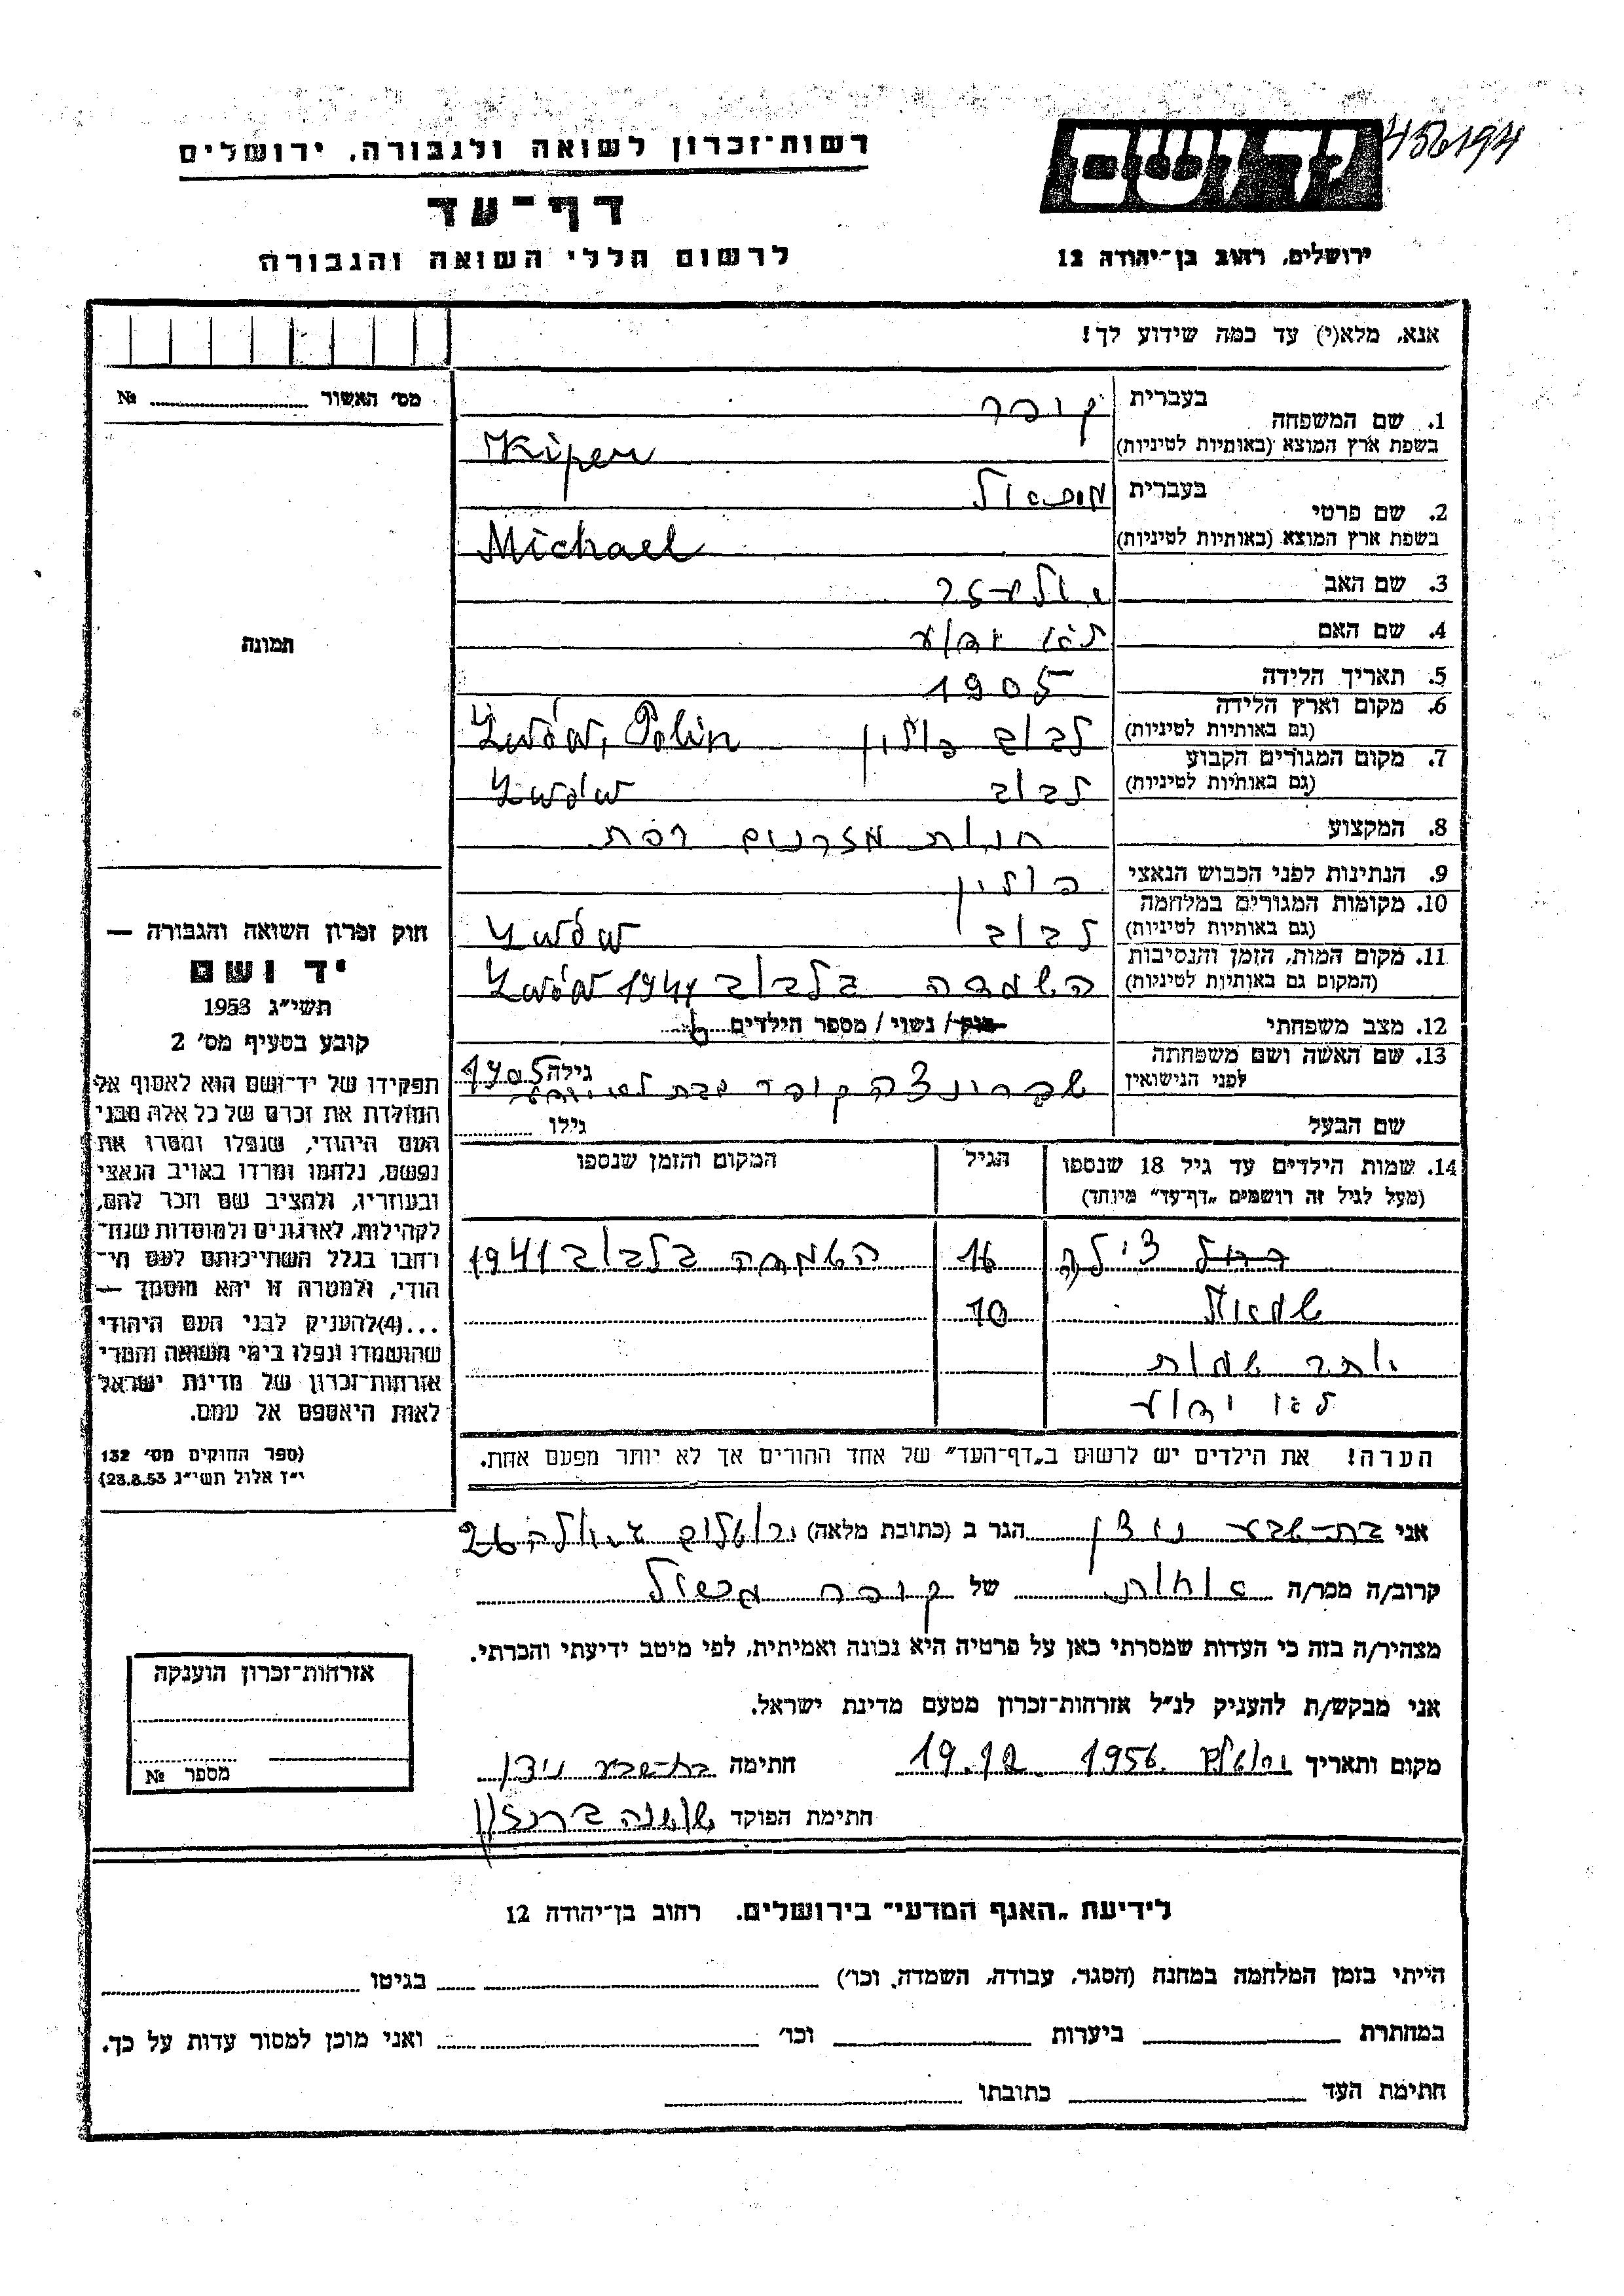 רשות־זכרון לשואה ולגבורה, ירושלים
דף־עד
לרשום חללי השואה והגבורה
יד ושם
ירושלים, רחוב בן־יהודה 12
אנא, מלא(י) עד כמה שידוע לך!
מס׳ האשור № 
תמונה
1. שם המשפחה בעברית קופר
בשפת ארץ המוצא (באותיות לטיניות) Kiper
2. שם פרטי בעברית
בשפת ארץ המוצא (באותיות לטיניות) Michael
3. שם האב
4. שם האם לא ידוע
5. תאריך הלידה 1905
6. מקום וארץ הלידה
(גם באותיות לטיניות) לבוב פולין Lwów, Polin
7. מקום המגורים הקבוע
(גם באותיות לטיניות) לבוב Lwów
8. המקצוע חנות
9. הנתינות לפני הכבוש הנאצי פולין
10. מקומות המגורים במלחמה
(גם באותיות לטיניות) לבוב Lwów
11. מקום המות, הזמן והנסיבות
(המקום גם באותיות לטיניות) השמדה בלבוב 1941 Lwów
12. מצב משפחתי רוק / נשוי / מספר הילדים 6
13. שם האשה ושם משפחתה
לפני הנישואין שפרינצה קופר לא ידוע גילה 1905
שם הבעל גילו
14. שמות הילדים עד גיל 18 שנספו
(מעל לגיל זה רושמים „דף־עד״ מיוחד)
הגיל
המקום והזמן שנספו
צילה 16 השמדה בלבוב 1941
שמואל 10
יתר שמות
לא ידוע
הערה! את הילדים יש לרשום ב„דף־העד״ של אחד ההורים אך לא יותר מפעם אחת.
חוק זכרון השואה והגבורה —
יד ושם
תשי״ג 1953
קובע בסעיף מס׳ 2
תפקידו של יד־ושם הוא לאסוף אל
המולדת את זכרם של כל אלה מבני
העם היהודי, שנפלו ומסרו את
נפשם, נלחמו ומרדו באויב הנאצי
ובעוזריו, ולהציב שם וזכר להם,
לקהילות, לארגונים ולמוסדות שנח־
רחבו בגלל השתייכותם לעם הי־
הודי, ולמטרה זו יהא מוסמך —
...(4)להעניק לבני העם היהודי
שהושמדו ונפלו בימי השואה והמרי
אזרחות־זכרון של מדינת ישראל
לאות היאספם אל עמם.
(ספר החוקים מס׳ 132
י״ז אלול תשי״ג 28.8.53)
אני בת־שבע הגר ב (כתובת מלאה) ירושלים 26
קרוב/ה מכר/ה אחות של קופר
מצהיר/ה בזה כי העדות שמסרתי כאן על פרטיה היא נכונה ואמיתית, לפי מיטב ידיעתי והכרתי.
אני מבקש/ת להעניק לנ״ל אזרחות־זכרון מטעם מדינת ישראל.
מקום ותאריך ירושלים 19.12.1956 חתימה בת־שבע
חתימת הפוקד שושנה
אזרחות־זכרון הוענקה
מספר №
לידיעת „האגף המדעי״ בירושלים, רחוב בן־יהודה 12
הייתי בזמן המלחמה במחנה (הסגר, עבודה, השמדה, וכו׳) בגיטו
במחתרת ביערות וכו׳ ואני מוכן למסור עדות על כך.
חתימת העד כתובתו